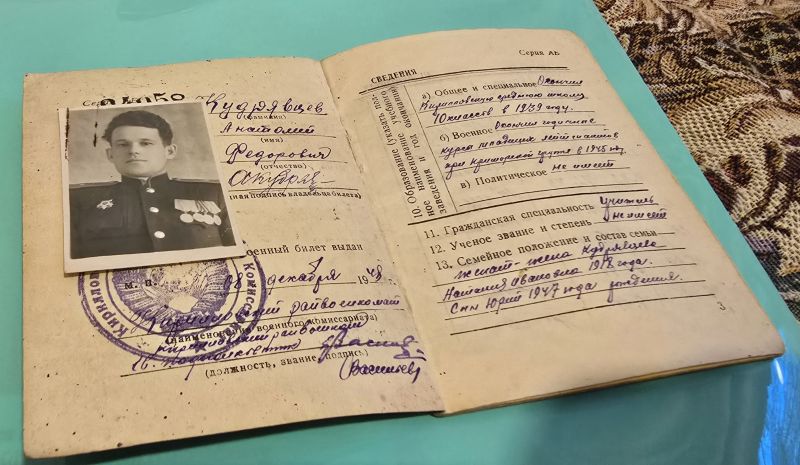 Кудрявцев
(фамилия)
Анатолий
(имя)
Федорович
(отчество)
(личная подпись владельца билета)
военный билет выдан
М. П. 08 декабря 1948
Кирилловский райвоенкомат
(наименование военного комиссариата)
Кирилловский райвоенком
(должность, звание, подпись)
(Васильев)
Серия АБ
СВЕДЕНИЯ
10. Образование (указать полное наименование учебного заведения и год окончания)
а) Общее и специальное Окончил
Кирилловскую среднюю школу
10 классов в 1939 году.
б) Военное Окончил годичные
курсы младших лейтенантов
при Приморской группе в 1945 году
в) Политическое не имеет
11. Гражданская специальность учитель
12. Ученое звание и степень не имеет
13. Семейное положение и состав семьи
женат - жена Кудрявцева
Наталия Ивановна 1918 года.
Сын Юрий 1947 года рождения.
3